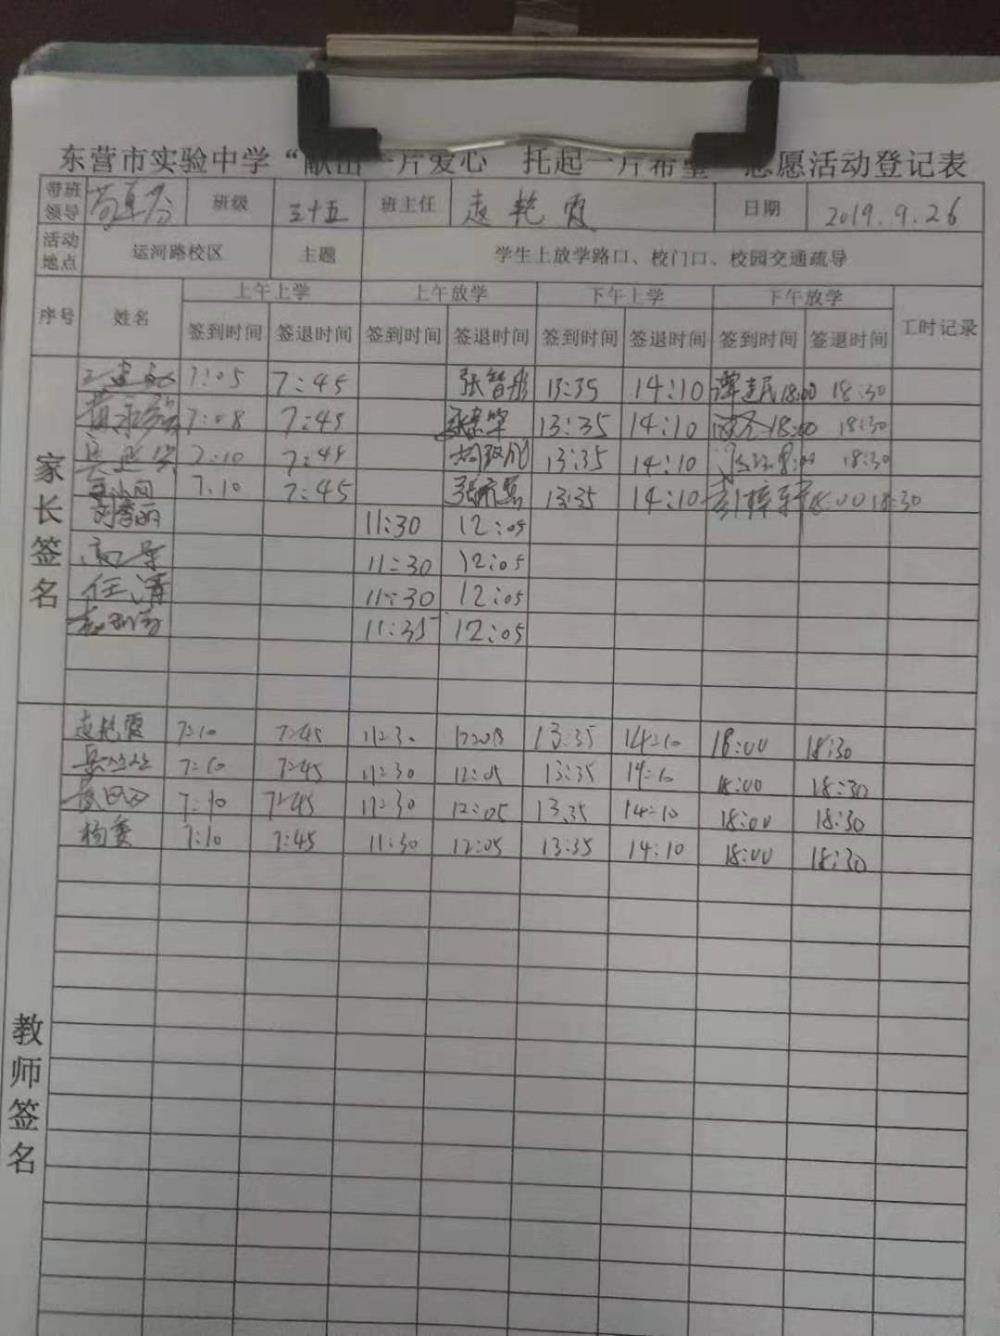 东营市实验中学“献出一片爱心 托起一片希望”志愿活动登记表
带班领导 班级 三十五 班主任 赵艳霞 日期 2019.9.26
活动地点 运河路校区 主题 学生上放学路口、校门口、校园交通疏导
序号 姓名 上午上学 上午放学 下午上学 下午放学 工时记录
签到时间 签退时间 签到时间 签退时间 签到时间 签退时间 签到时间 签退时间
家长签名
7:05 7:45 张智彤 13:35 14:10 谭建民 18:00 18:30
7:08 7:45 13:35 14:10 18:00 18:30
7:10 7:45 13:35 14:10 18:30
7:10 7:45 13:35 14:10 18:00 18:30
11:30 12:05
11:30 12:05
任清 11:30 12:05
11:35 12:05
教师签名
赵艳霞 7:10 7:45 11:30 13:35 14:10 18:00 18:30
7:10 7:45 11:30 12:05 13:35 14:10 18:00 18:30
7:10 7:45 11:30 12:05 13:35 14:10 18:00 18:30
7:10 7:45 11:30 12:05 13:35 14:10 18:00 18:30